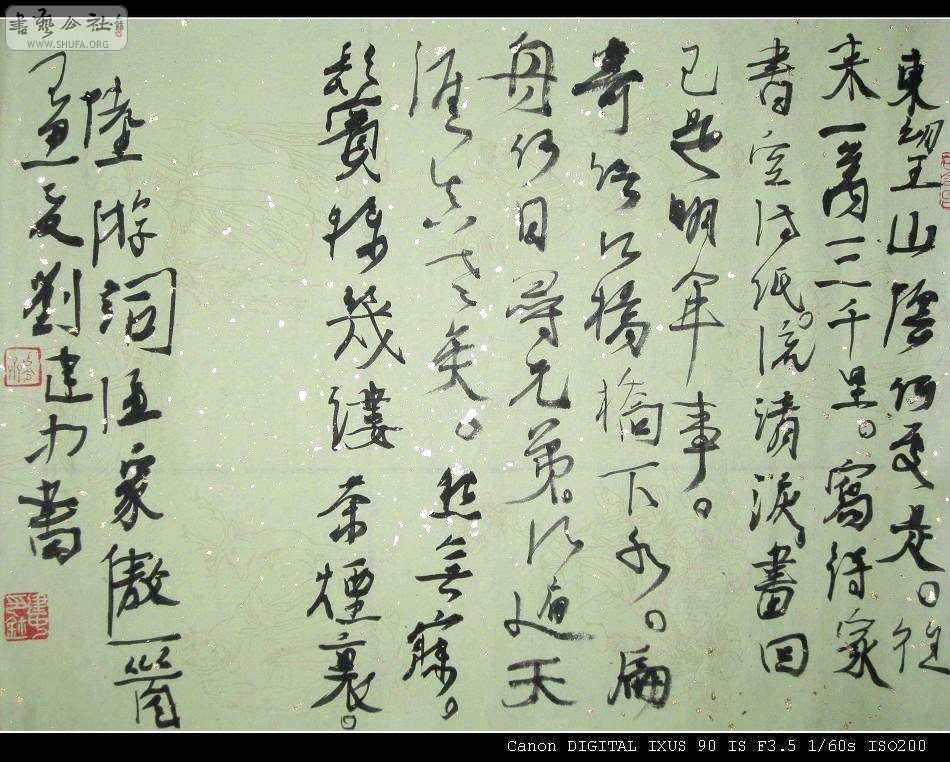 書藝公社
WWW.SHUFA.ORG
東望山陰何處是。往
来一萬三千里。寫得家
書空满紙。流清淚。書回
已是明年事。
寄語紅橋橋下水。扁
舟何日尋兄弟。行遍天
涯真老矣。愁無寐。
鬢絲幾縷茶煙裏。
陸游詞渔家傲一首
丁亥夏劉建力書
Canon DIGITAL IXUS 90 IS F3.5 1/60s ISO200